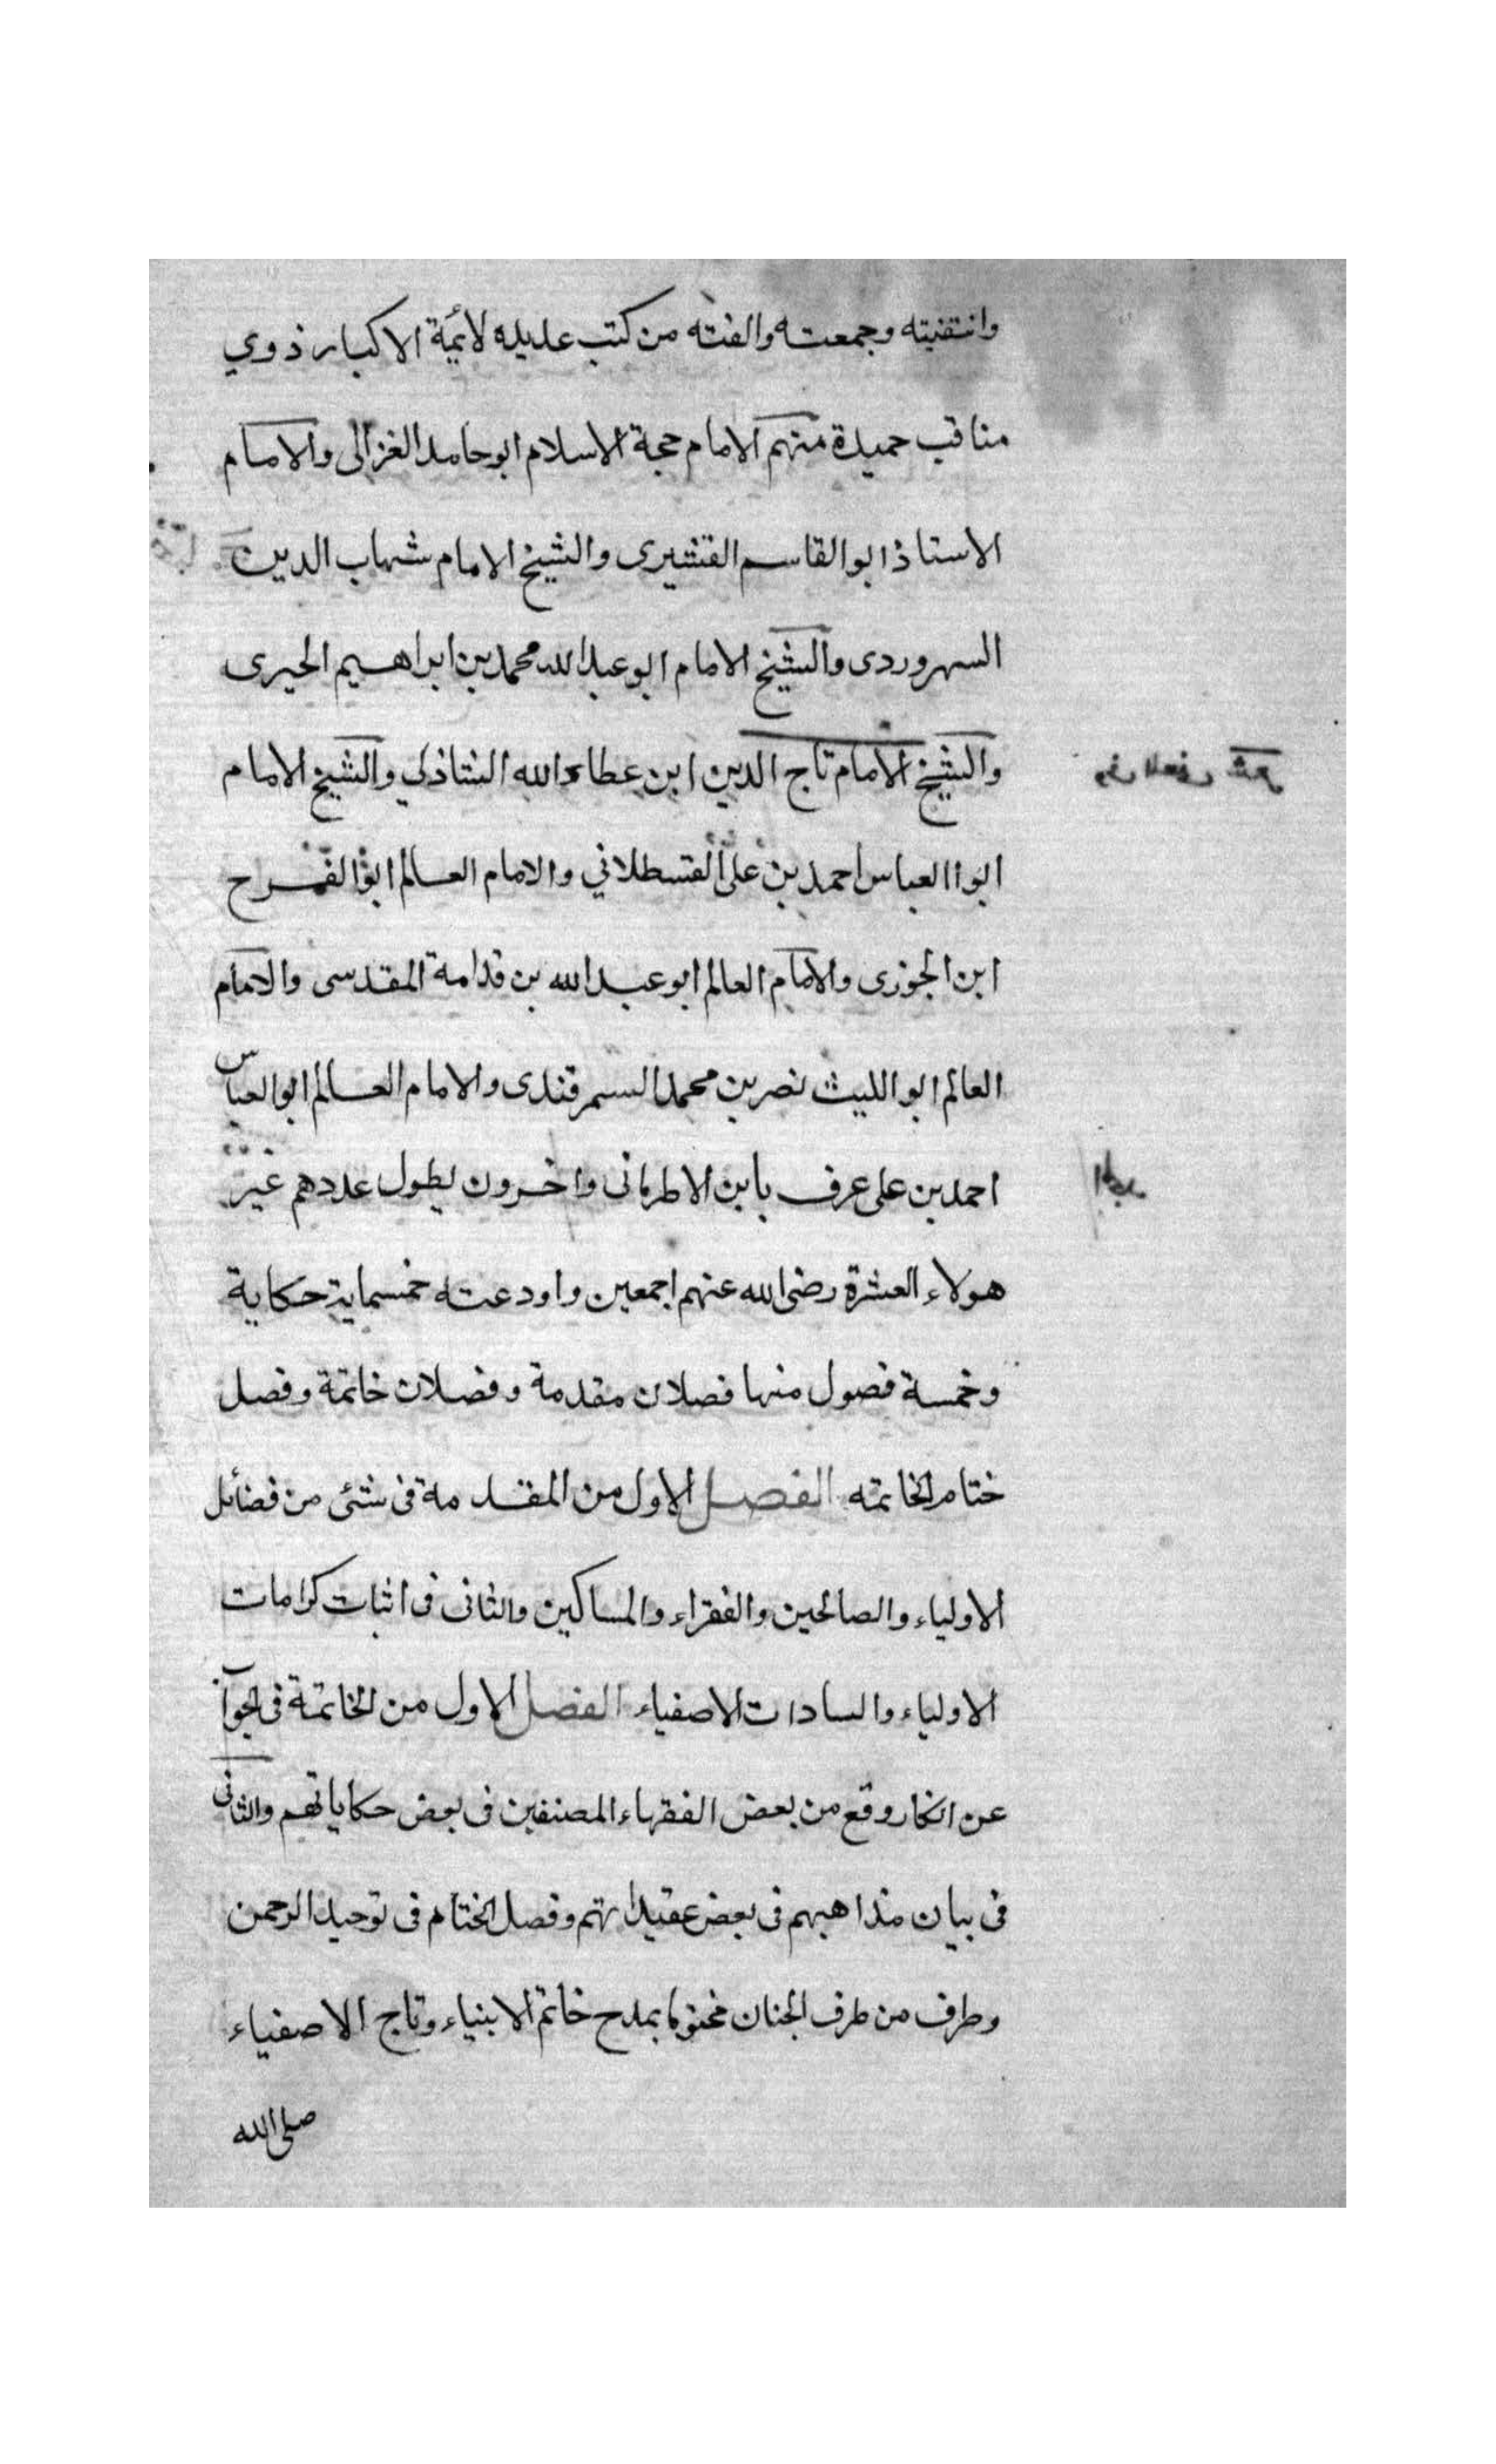 وانتقنيته وجمعته والفته من كتب عديده لأئمة الاكبار ذوي
مناقب حميدة منهم الامام حجة الاسلام ابو حامد الغزالى والامام
الاستاذ ابو القاسم القشيرى والشيخ الامام شهاب الدين
السهروردى والشيخ الامام ابو عبد الله محمد بن ابراهيم الحيرى
والشيخ الامام تاج الدين ابن عطاء الله الشاذلي والشيخ الامام
ابوا العباس احمد بن على القسطلاني والامام العالم ابو الفرح
ابن الجوزى والامام العالم ابو عبد الله بن قدامة المقدسى والامام
العالم ابو الليث نصر بن محمد السمرقندى والامام العالم ابو العباس
احمد بن على عرف بابن الاطربانى واخرون يطول عددهم غير
هولاء العشرة رضى الله عنهم اجمعين واودعته خمسماية حكاية
وخمسة فصول منها فصلان مقدمة وفصلان خاتمة وفصل
ختام الخاتمه الفصل الاول من المقدمة فى شئ من فضائل
الاولياء والصالحين والفقراء والمساكين والثانى فى اثبات كرامات
الاولياء والسادات الاصفياء الفصل الاول من الخاتمة فى الجواب
عن انكار وقع من بعض الفقهاء المصنفين فى بعض حكاياتهم والثانى
فى بيان مذاهبهم فى بعض عقيداتهم وفصل الختام فى توحيد الرحمن
وطرف من طرف الجنان مختوما بمدح خاتم الانبياء وتاج الاصفياء
صلى الله